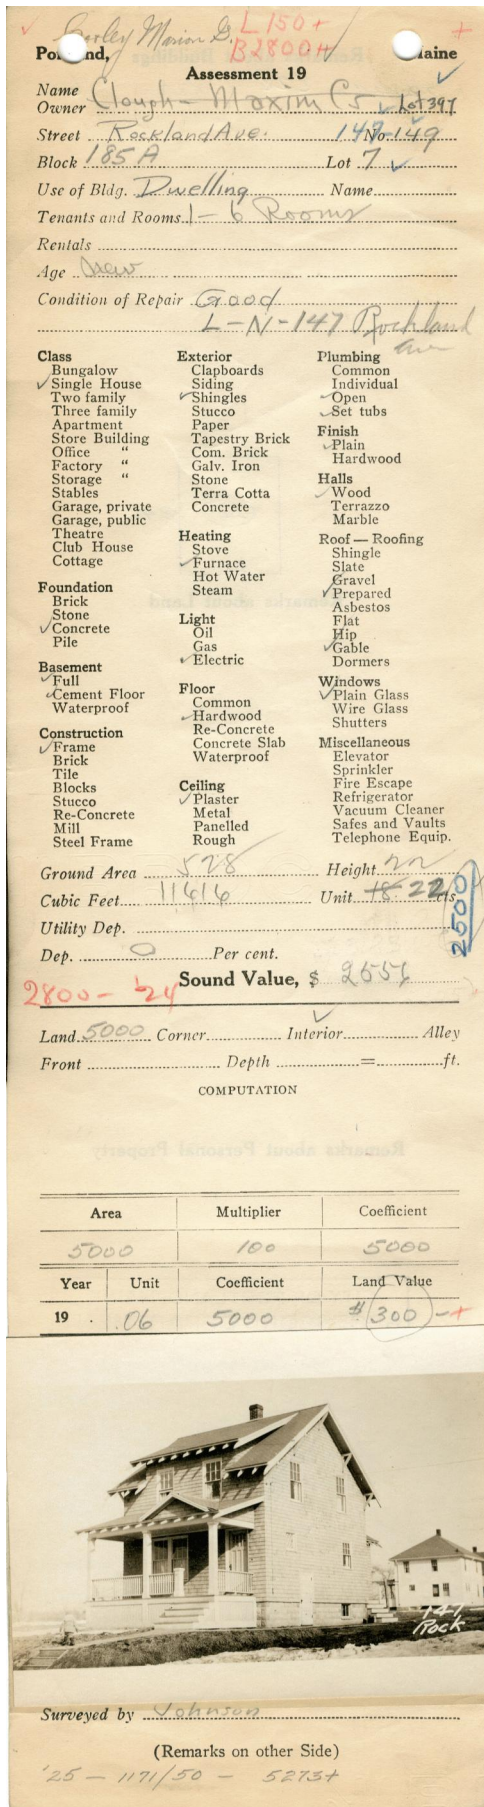 Corley Marion G. L 150+
Portland, B2800+ Maine
Assessment 19
Name
Owner Clough-Maxim Co Lot 397
Street Rockland Ave. 147 No. 149
Block 185A Lot 7
Use of Bldg. Dwelling Name
Tenants and Rooms 1-6 Rooms
Rentals
Age new
Condition of Repair Good
L-N-147 Rockland
Ave
Class
Bungalow
Single House
Two family
Three family
Apartment
Store Building
Office "
Factory "
Storage "
Stables
Garage, private
Garage, public
Theatre
Club House
Cottage
Foundation
Brick
Stone
Concrete
Pile
Basement
Full
Cement Floor
Waterproof
Construction
Frame
Brick
Tile
Blocks
Stucco
Re-Concrete
Mill
Steel Frame
Exterior
Clapboards
Siding
Shingles
Stucco
Paper
Tapestry Brick
Com. Brick
Galv. Iron
Stone
Terra Cotta
Concrete
Heating
Stove
Furnace
Hot Water
Steam
Light
Oil
Gas
Electric
Floor
Common
Hardwood
Re-Concrete
Concrete Slab
Waterproof
Ceiling
Plaster
Metal
Panelled
Rough
Plumbing
Common
Individual
Open
Set tubs
Finish
Plain
Hardwood
Halls
Wood
Terrazzo
Marble
Roof — Roofing
Shingle
Slate
Gravel
Prepared
Asbestos
Flat
Hip
Gable
Dormers
Windows
Plain Glass
Wire Glass
Shutters
Miscellaneous
Elevator
Sprinkler
Fire Escape
Refrigerator
Vacuum Cleaner
Safes and Vaults
Telephone Equip.
Ground Area 528 Height 22
Cubic Feet 11616 Unit 18 22 cts
2500
Utility Dep.
Dep. 0 Per cent.
Sound Value, $ 2556
2800 - '24
Land 5000 Corner Interior Alley
Front Depth = ft.
COMPUTATION
Area Multiplier Coefficient
5000 100 5000
Year Unit Coefficient Land Value
19 . .06 5000 $ 300 -+
147
Rock
Surveyed by Johnson
(Remarks on other Side)
'25 - 1171/50 - 5273+